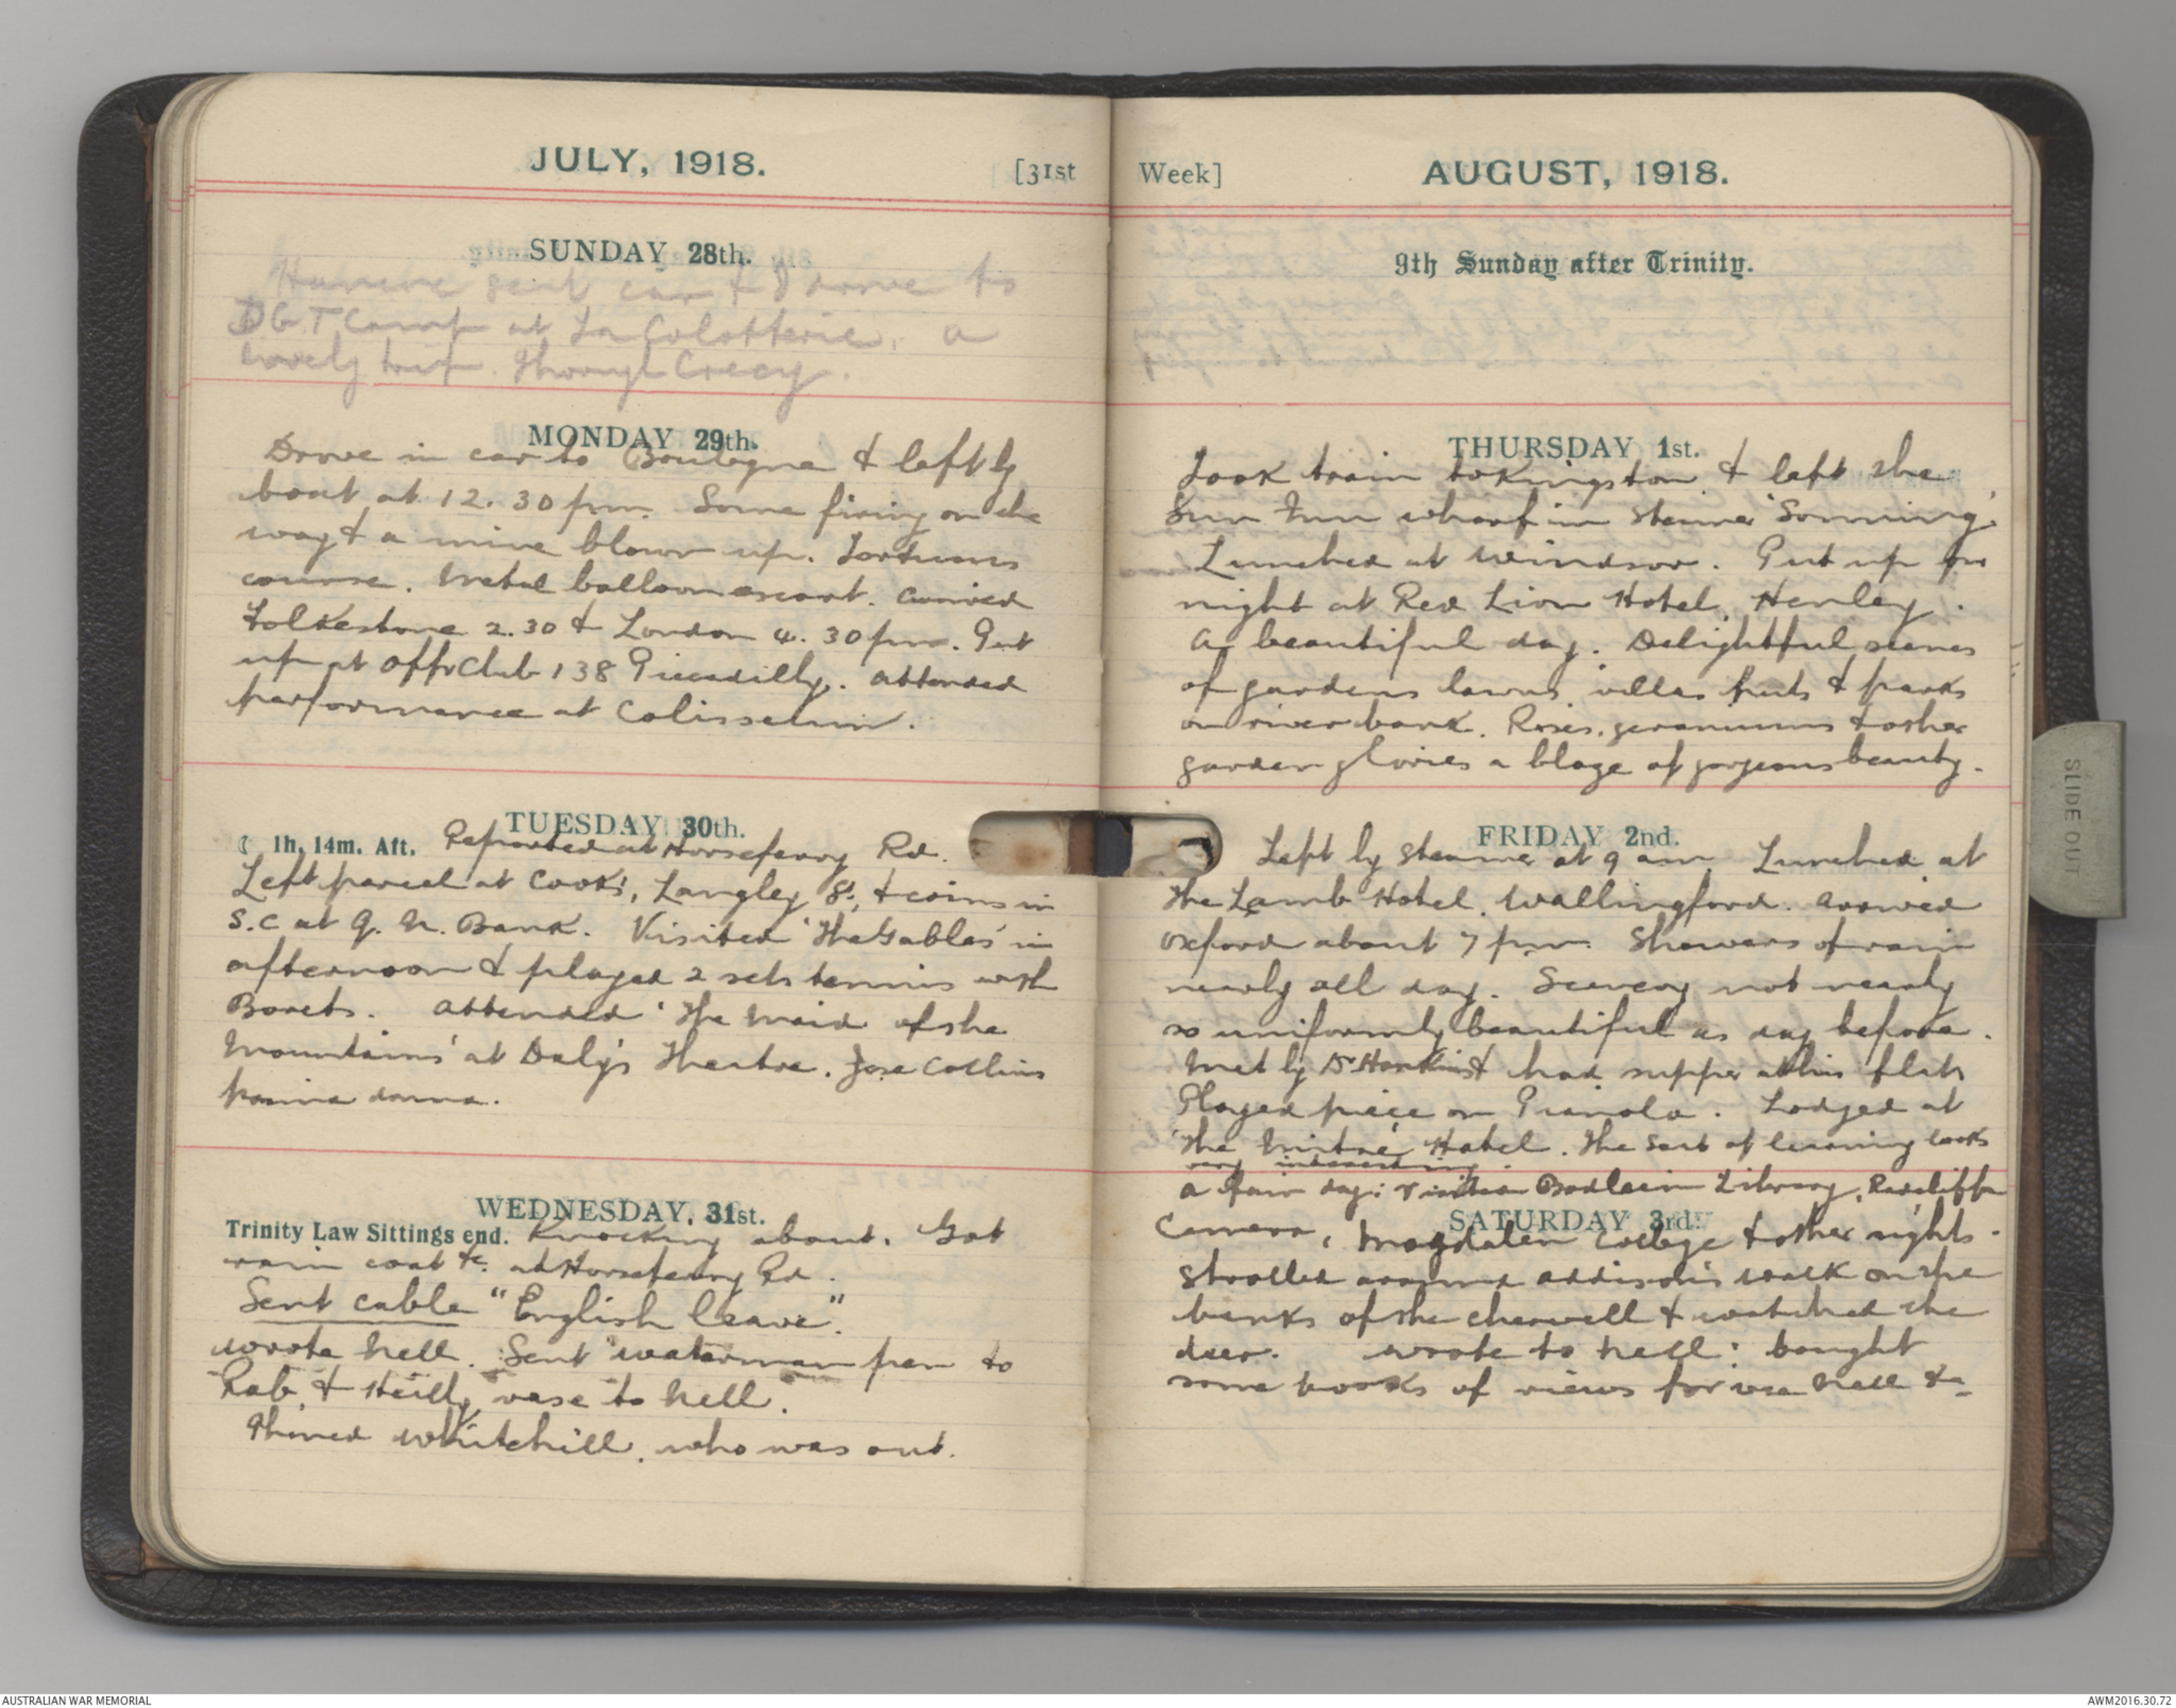 JULY, 1918.
[31st
SUNDAY 28th.
sent car & I drove to
DGT Camp at La Calotterie, a
lovely trip through Crecy.
MONDAY 29th.
Drove in car to Boulogne & left by
boat at 12.30 pm. Some firing on the
way & a mine blown up. Tortuous
course. Metal balloon escort. Arrived
Folkestone 2.30 & London 4.30 pm. Put
up at Offrs Club 138 Piccadilly. Attended
performance at Colisseum.
TUESDAY 30th.
☾ 1h. 14m. Aft. Reported at Horseferry Rd.
Left parcel at Cook's, Langley St, & coins in
S.C at Q. N. Bank. Visited 'The Gables' in
afternoon & played 2 sets tennis with
attended 'The Maid of the
Mountains' at Daly's Theatre. Jose Collins
prima donna.
WEDNESDAY, 31st.
Trinity Law Sittings end. Knocking about. Got
rain coat &c. at Horseferry Rd.
Sent cable "English leave".
Wrote Nell. Sent waterman pen to
Rab, & Heilly vase to Nell.
Phoned Whitehill, who was out.
Week]
AUGUST, 1918.
9th Sunday after Trinity.
THURSDAY 1st.
Took train to Kingston & left the
Sun Inn wharf in steamer 'Sonning'.
Lunched at Windsor. Put up for
night at Red Lion Hotel, Henley.
A beautiful day. Delightful scenes
of gardens lawns, villas & parks
on river bank. Roses, geraniums & other
garden glories a blaze of gorgeous beauty.
FRIDAY 2nd.
Left by steamer at 9 am Lunched at
the Lamb Hotel, Wallingford. Arrived
Oxford about 7 pm. Showers of rain
nearly all day. Scenery not nearly
so uniformly beautiful as day before.
Met by Dr Hankins & had supper at his flat.
Played piece on Pianola. Lodged at
'The Mitre' Hotel. The seat of learning looks
very interesting.
A fair day: visited Bodlein Library, Radcliffe
SATURDAY 3rd.
Camera, Magdalen College & other sights.
Strolled around Addison's walk on the
banks of the Cherwell & watched the
deer. Wrote to Nell: bought
some books of views for Nell &c
SLIDE OUT
AUSTRALIAN WAR MEMORIAL
AWM2016.30.72